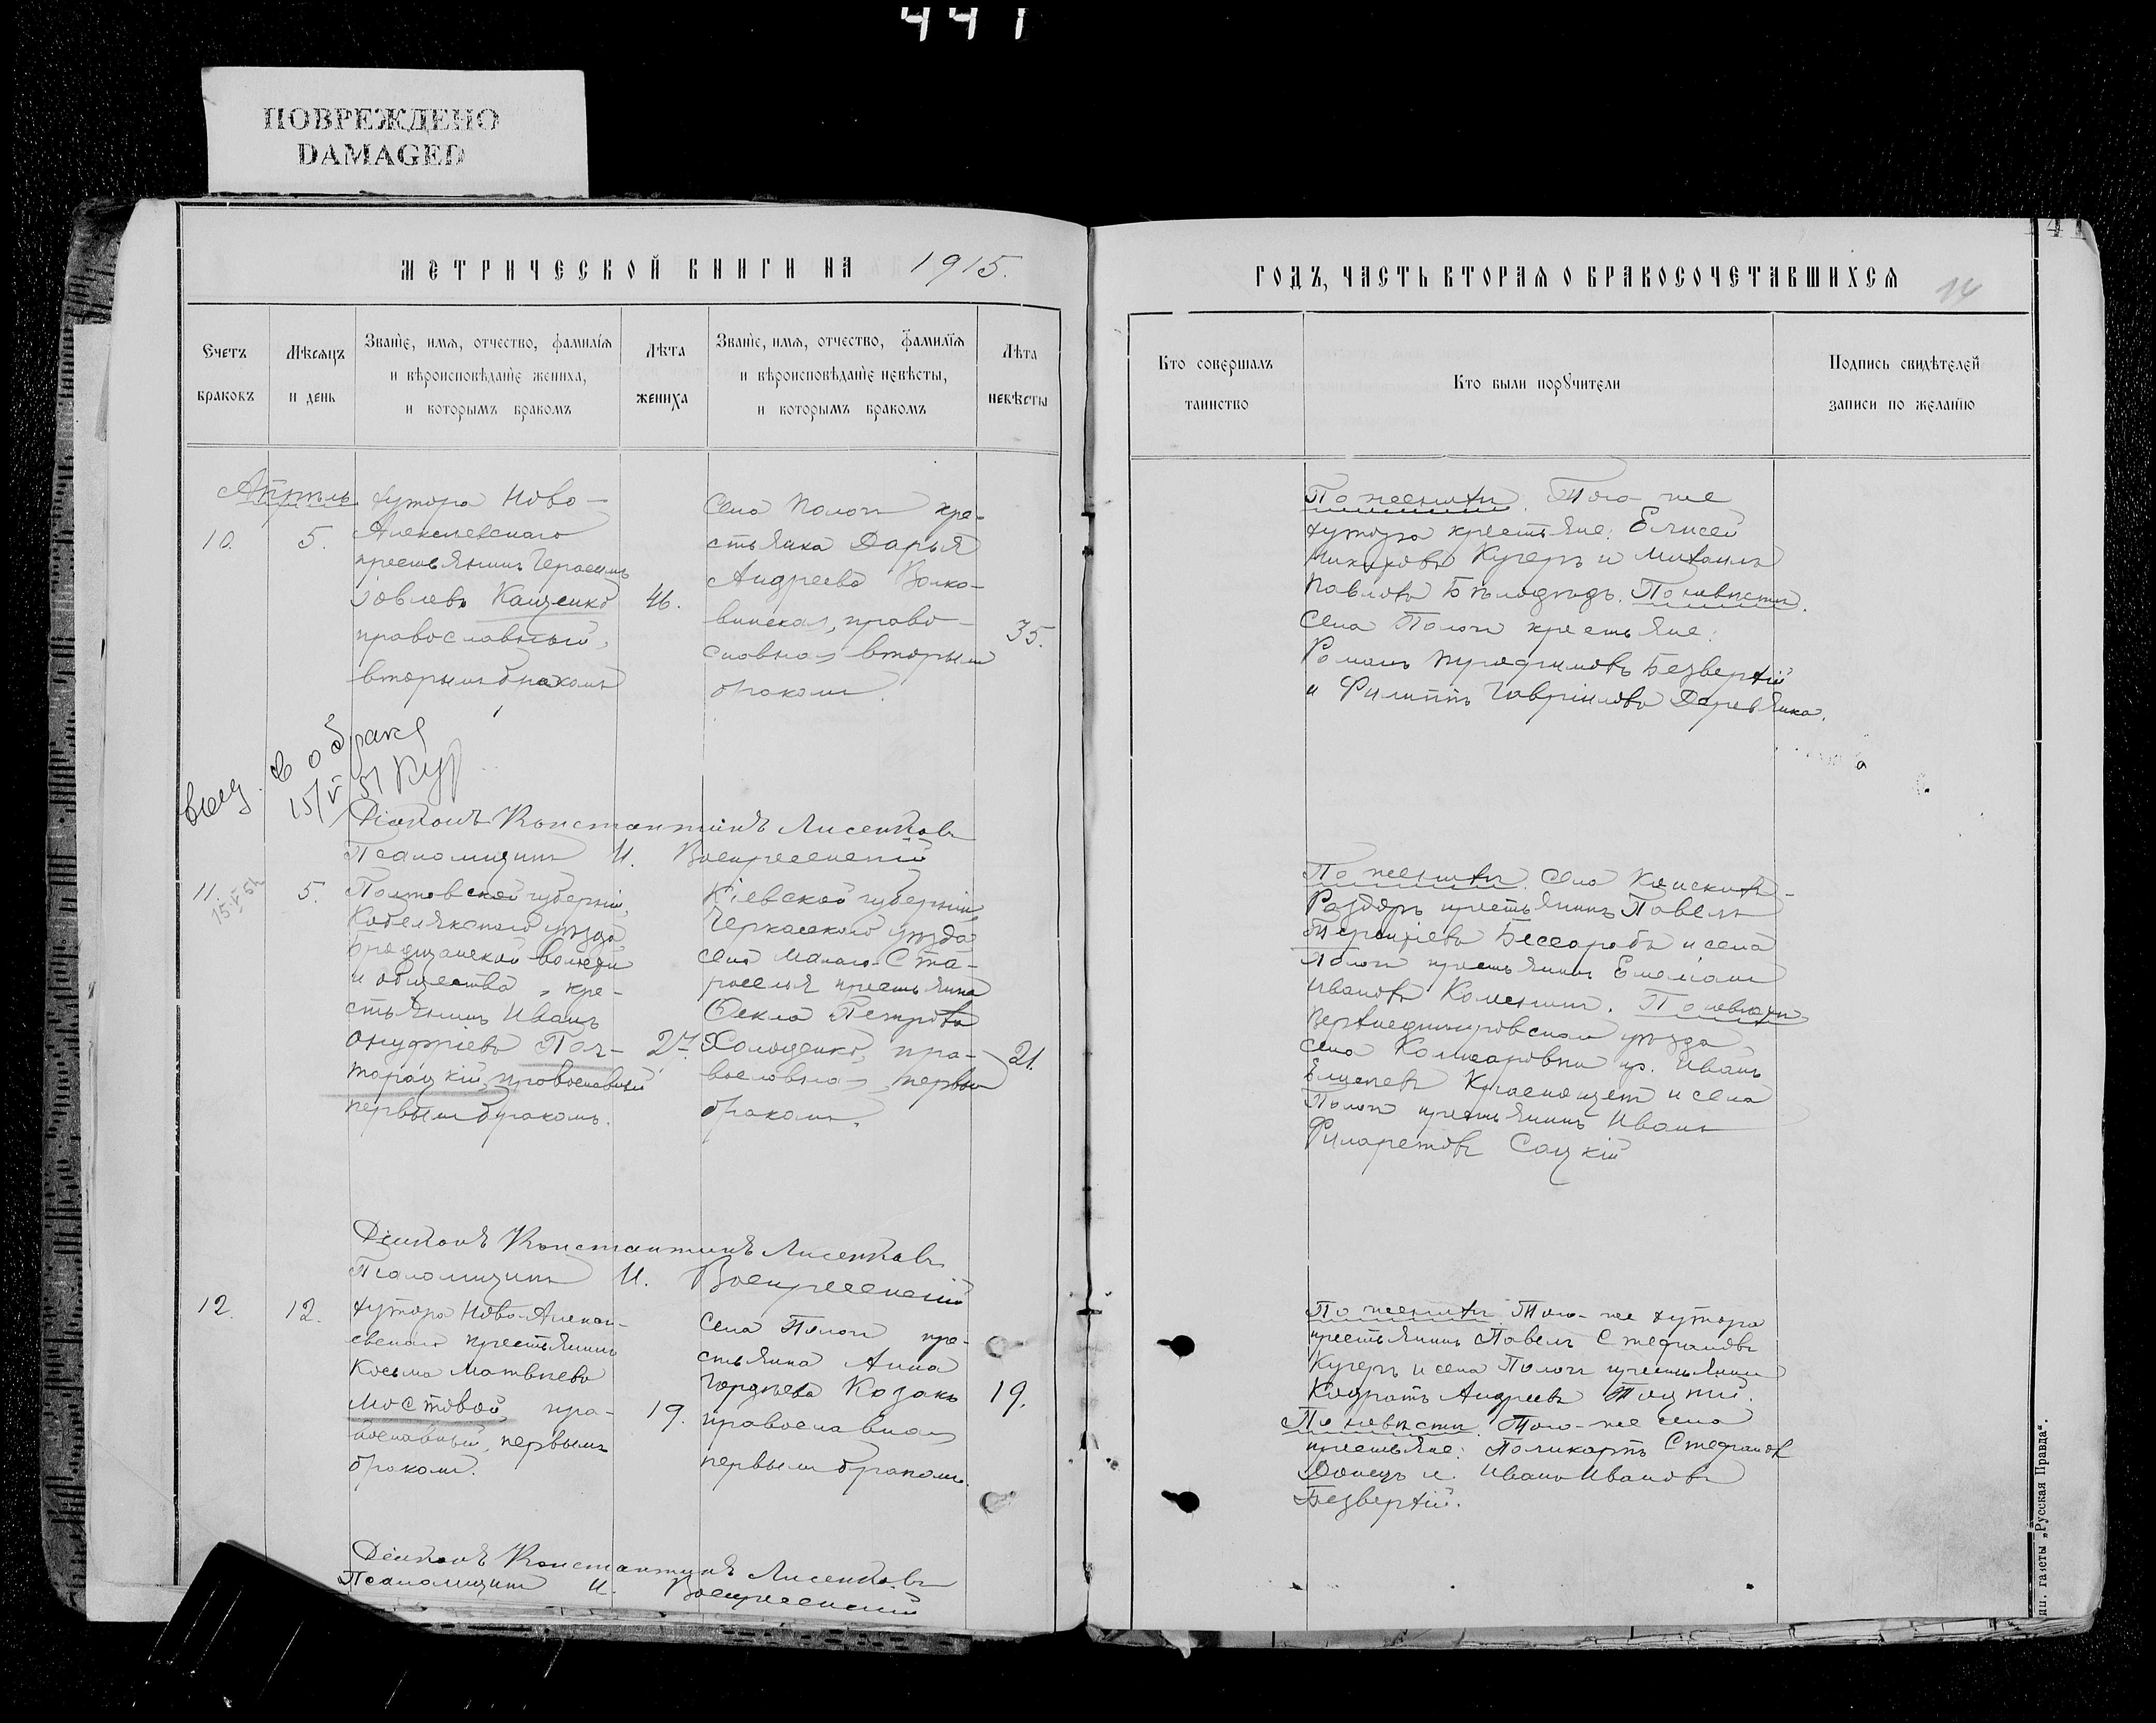 441
ПОВРЕЖДЕНО
DAMAGED
41
МЕТРИЧЕСКОЙ КНИГИ НА 1915.
ГОДЪ, ЧАСТЬ ВТОРАЯ О БРАКОСОЧЕТАВШИХСЯ
14
Счетъ
браковъ
Мѣсяцъ
и день
Званіе, имя, отчество, фамилія
и вѣроисповѣданіе жениха,
и которымъ бракомъ
Лѣта
жениха
Званіе, имя, отчество, фамилія
и вѣроисповѣданіе невѣсты,
и которымъ бракомъ
Лѣта
невѣсты
Кто совершалъ
таинство
Кто были поручители
Подпись свидѣтелей
записи по желанію
Апрѣль
10.
5.
хутора Ново-
Алексѣевскаго
крестьянинъ Герасимъ
Іовлевъ Кащенко
православный,
вторымъ бракомъ
46.
Села Пологи кре-
стьянка Дарья
Андреева Волко-
винская, право-
славная вторымъ
бракомъ.
35.
По женихѣ. Того-же
хутора крестьяне: Елисей
Кучеръ и Михаилъ
Павловъ Бѣлодѣдъ. По невѣстѣ.
Села Пологи крестьяне:
Романъ Трофимовъ Безверхій
и Филиппъ Гавріиловъ Деревянка.
о браке
15/V 51
Діаконъ Константинъ Лисенковъ
Псаломщикъ И. Воскресенскій
11.
15-V-51
5.
Полтавской губерніи,
Кобелякскаго уѣзда
волости
и общества, кре-
стьянинъ Иванъ
Онуфріевъ Пол-
торацкій, православный
первымъ бракомъ.
27.
Кіевской губерніи
Черкасскаго уѣзда
села Малаго-Ста-
роселья крестьянка
Ѳекла Петрова
Холоденко, пра-
вославная первымъ
бракомъ.
21.
По женихѣ. Села Конскихъ-
Раздоръ крестьянинъ Павелъ
Терентіевъ Бессарабъ и села
Пологи крестьянинъ Емеліанъ
Ивановъ. По невѣстѣ
Верхнеднѣпровскаго уѣзда
села Комисаровки кр. Иванъ
Елисеевъ и села
Пологи крестьянинъ Иванъ
Филаретовъ Сацкій
Діаконъ Константинъ Лисенковъ
Псаломщикъ И. Воскресенскій
12.
12.
хутора Ново-Алексѣ-
евскаго крестьянинъ
Косьма Матвѣевъ
Мостовой, пра-
вославный, первымъ
бракомъ.
19.
Села Пологи кре-
стьянка Анна
Гордѣева Козакъ
православная
первымъ бракомъ.
19.
По женихѣ. Того-же хутора
крестьянинъ Павелъ Стефановъ
Кучеръ и села Пологи крестьянинъ
Кодратъ Андреевъ Тоцкій.
По невѣстѣ. Того-же села
крестьяне: Поликарпъ Стефановъ
Донецъ и Иванъ Ивановъ
Безверхій.
Діаконъ Константинъ Лисенковъ
Псаломщикъ И. Воскресенскій
газеты „Русская Правда“.